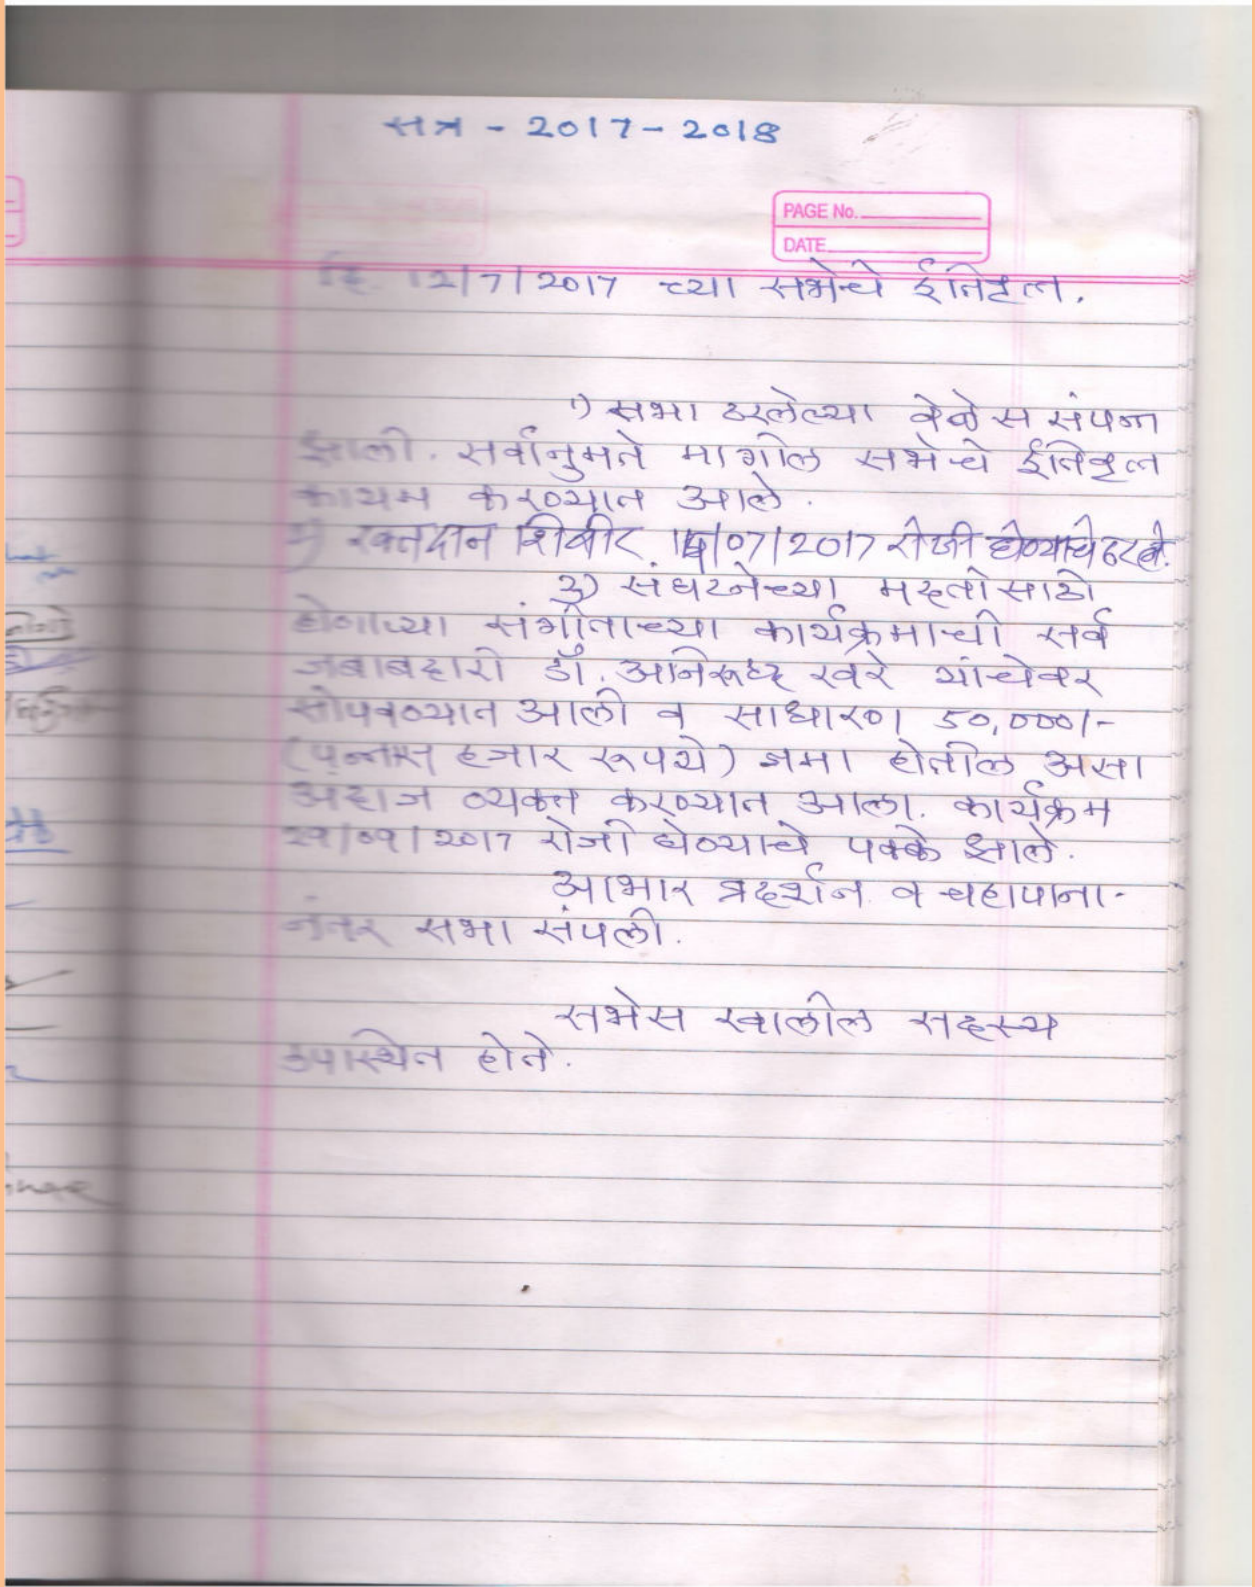 सत्र - 2017-2018
PAGE No.
DATE
दि. 12/7/2017 च्या सभेचे ईतिवृत्त.
1) सभा ठरलेल्या वेळेस संपन्न
झाली. सर्वानुमते मागील सभेचे ईतिवृत्त
कायम करण्यात आले.
रक्तदान शिबीर /07/2017 रोजी घेण्याचे ठरले.
3) संघटनेच्या मदतीसाठी
होणाऱ्या संगीताच्या कार्यक्रमाची सर्व
जबाबदारी डॉ. अनिरूध्द खरे यांचेवर
सोपवण्यात आली व साधारण 50,000/-
(पन्नास हजार रूपये) जमा होतील असा
अंदाज व्यक्त करण्यात आला. कार्यक्रम
/09/2017 रोजी घेण्याचे पक्के झाले.
आभार प्रदर्शन व चहापाना-
नंतर सभा संपली.
सभेस खालील सदस्य
उपस्थित होते.